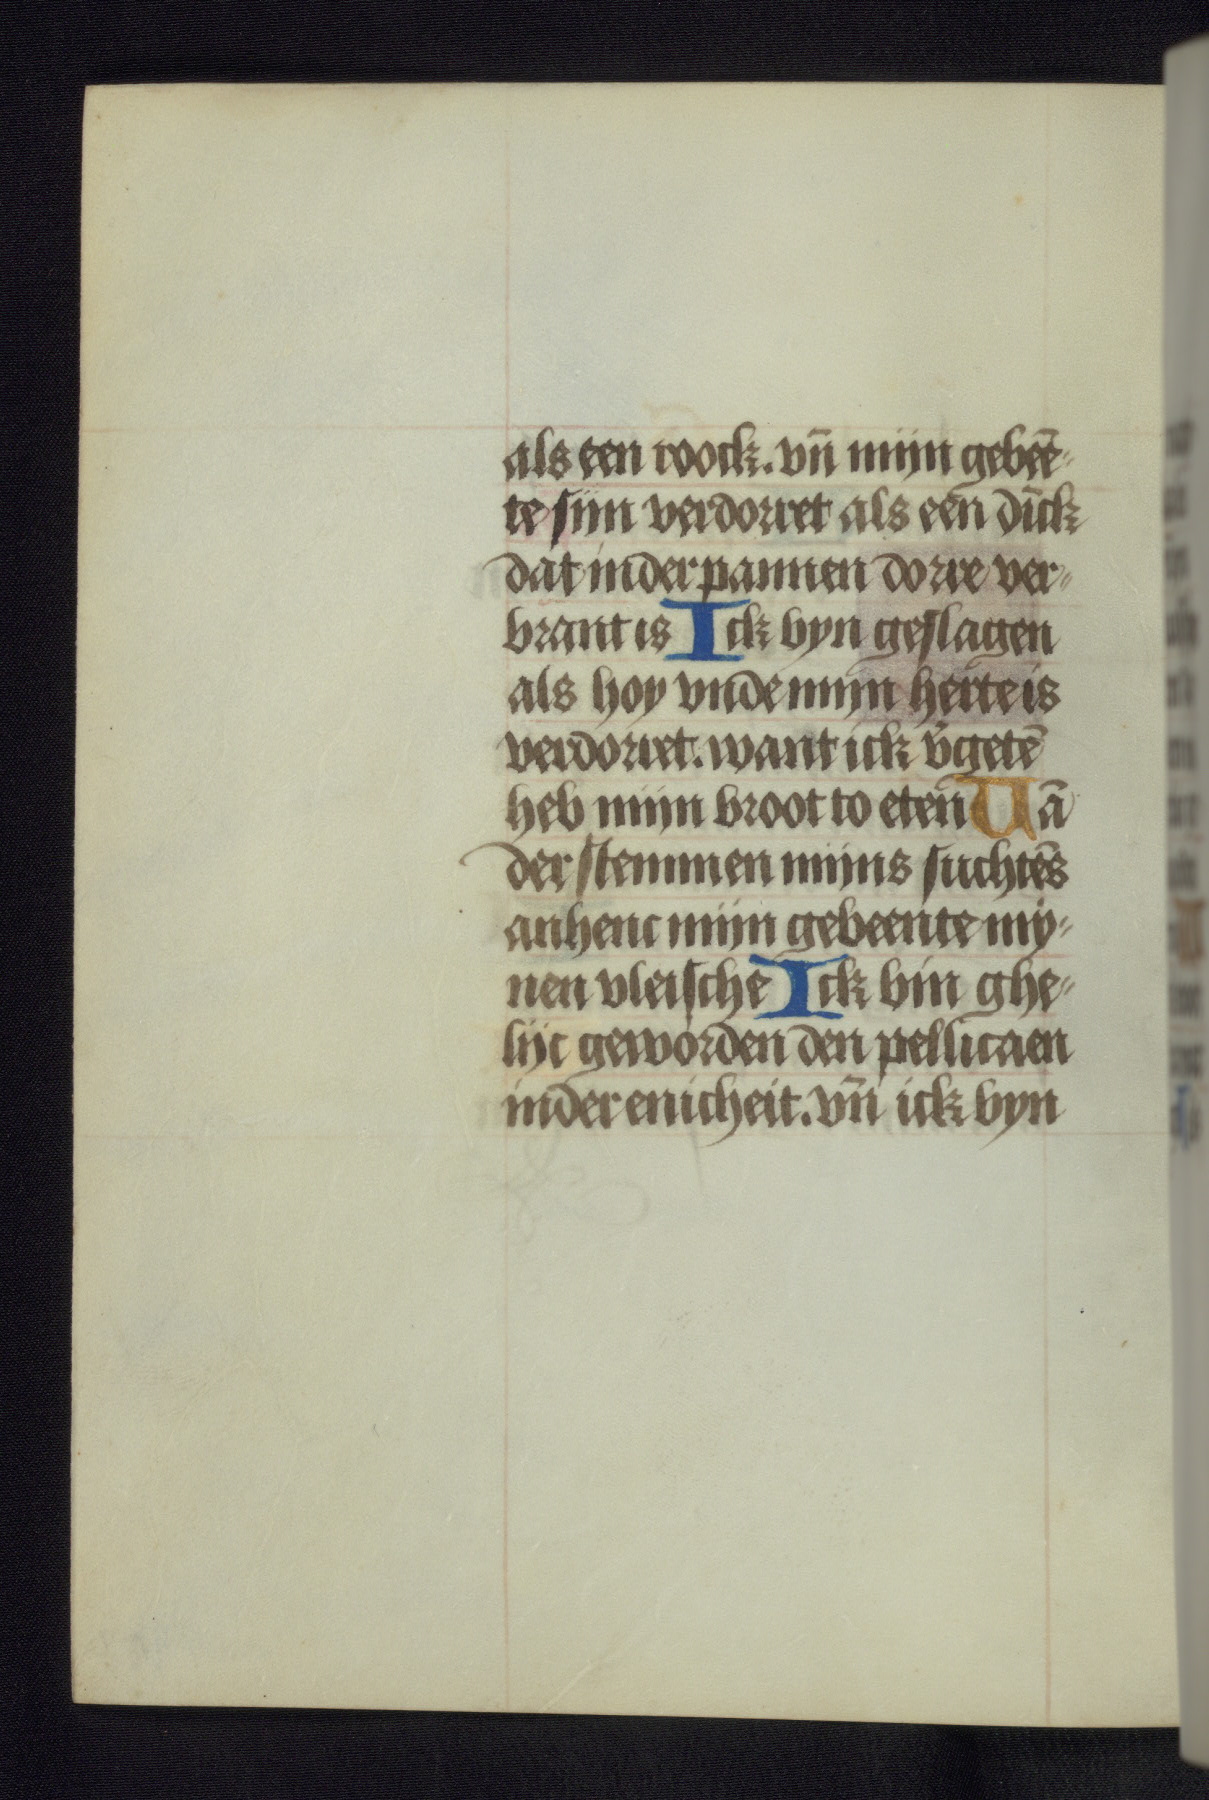 als een roock. vn̄ mijn gebeē-
te sijn verdorret als een dīck
dat in der pannen dorre ver-
brant is Ick byn geslagen
als hoy vnde mijn herte is
verdorret. want ick v̄getē
heb mijn broot to eten Uā
der stemmen mijns suchtēs
anhenc mijn gebeente my-
nen vleische Ick bin ghe-
lijc geworden den pellicaen
in der enicheit. vn̄ ick byn